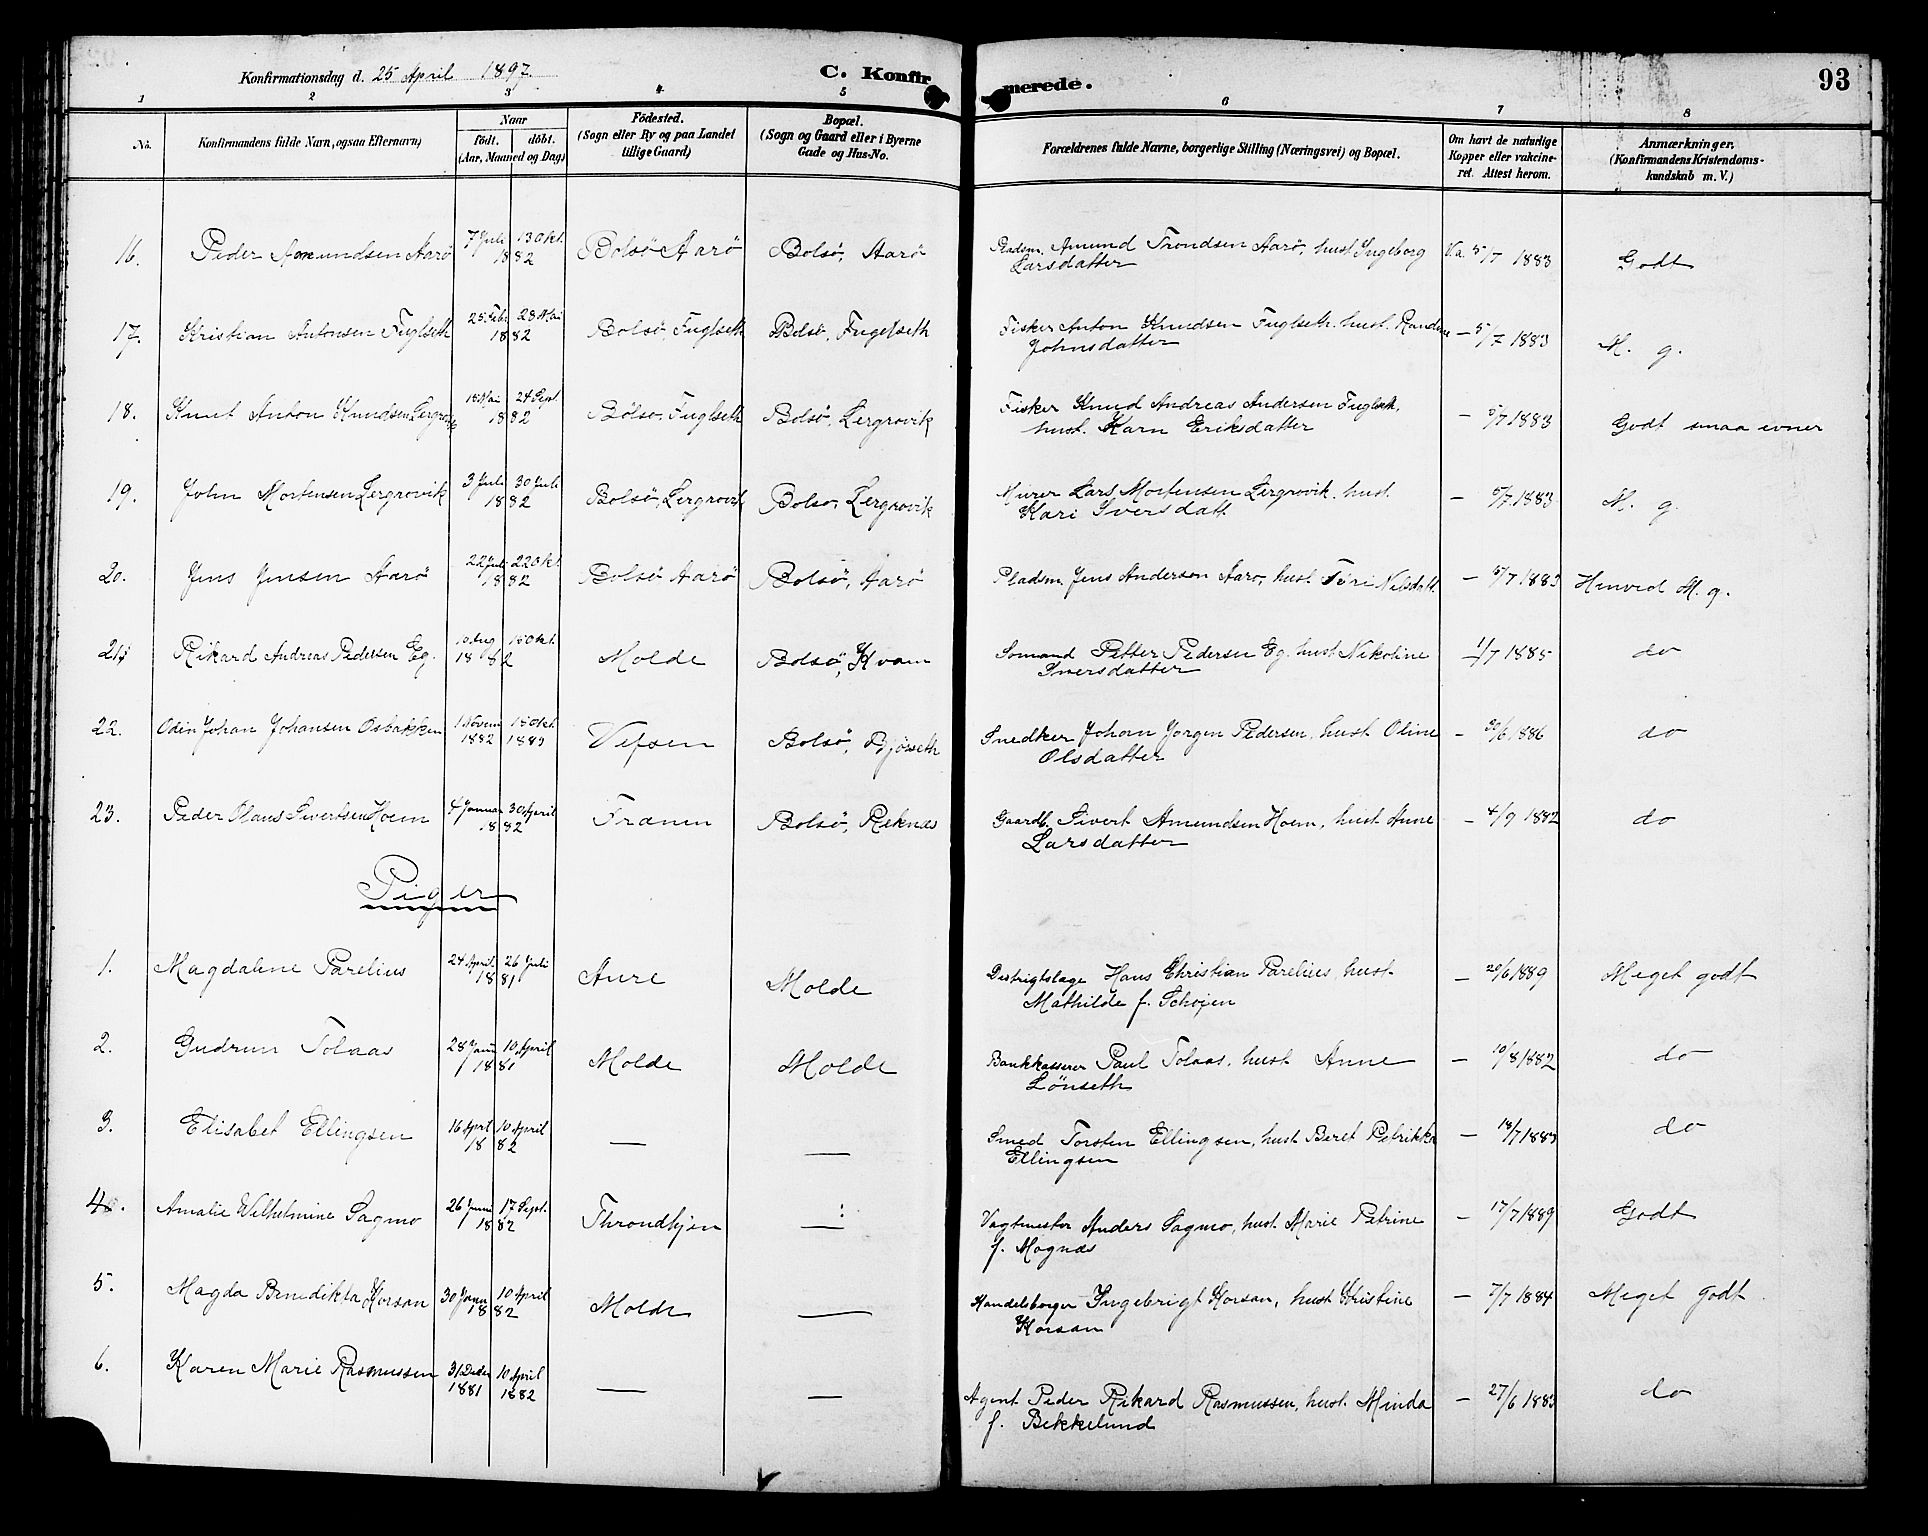 Konfirmationsdag d. 25 April 1897. C. Konfirmerede. 93
1 2 3 4 5 6 7 8
No. Konfirmandens fulde Navn, ogsaa Efternavn) Naar født. døbt. (Aar, Maaned og Dag) Fødested. (Sogn eller By og paa Landet tillige Gaard) Bopæl. (Sogn og Gaard eller i Byerne Gade og Hus-No. Forældrenes fulde Navne, borgerlige Stilling (Næringsvei) og Bopæl. Om havt de naturlige Kopper eller vakcineret. Attest herom. Anmærkninger. (Konfirmandens Kristendomskundskab m. V.)
16. Peder Amundsen Aarö 7 Juli 13 Okt. 1882 Bolsö Aarö Bolsö, Aarö Pladsm. Amund Trondsen Aarö, hust Ingeborg Larsdatter V.a. 5/7 1883 Godt
17. Kristian Antonsen Fuglseth 25 Febr 28 Mai 1882 Bolsö, Fuglseth Bolsö, Fugelseth Fisker Anton Knudsen Fuglseth. hust. Randine Johnsdatter — 5/7 1883 M. g.
18. Knut Anton Knudsen Lergrovik 18 Mai 24 Sept. 1882 Bolsö, Fuglseth Bolsö, Lergrovik Fisker Knud Andreas Andersen Fuglseth, hust. Karn Eriksdatter — 5/7 1883 Godt smaa evner
19. John Mortensen Lergrovik 3 Juli 30 Juli 1882 Bolsö, Lergrovik Bolsö, Lergrovik Murer Lars Mortensen Lergrovik. hust. Kari Iversdatt — 5/7 1883 M. g.
20. Jens Jensen Aarö 22 Juli 22 Okt. 1882 Bolsö Aarö Bolsö, Aarö Pladsm. Jens Andersen Aarö, hust Nilsdatt. — 5/7 1883 Henved M. g.
21. Rikard Andreas Pedersen Eg. 10 Aug 15 Okt. 1882 Molde Bolsö, Kvam Sömand Petter Pedersen Eg. hust Nikoline Iversdatter 1/7 1885 do
22. Odin Johan Johansen Osbakken 1 Novem 1882 15 Okt. 1883 Vefsen Bolsö, Bjöseth Snedker Johan Jörgen Pedersen, hust Oline Olsdatter — 30/6 1886 do
23. Peder Olaus Sivertsen Hoem 4 Januar 30 April 1882 Frænen Bolsö, Reknes Gaardb. Sivert Amundsen Hoem, hust Anne Larsdatter — 4/9 1882 do
Piger
1. Magdalene Parelius 24 April 26 Juli 1881 Aure Molde Distrigtslæge Hans Christian Parelius, hust. Mathilde f. Schöjen — 20/6 1889 Meget godt
2. Gudrun Tolaas 28 Janu 10 April 1881 Molde Molde Bankkasserer Paul Tolaas, hust Anne Lönseth — 10/8 1882 do
3. Elisabet Ellingsen 16 April 10 April 1882 — — Smed Torsten Ellingsen, hust Beret Petrikka Ellingsen — 18/7 1883 do
4. Amalie Wilhelmine Sagmo 26 Juni 17 Sept. 1882 Throndhjem — Vagtmester Anders Sagmo, hust. Marie Petrine f. Mognæs — 17/7 1889 Godt
5. Magda Benedikta Korsan 30 Janu 10 April 1882 Molde — Handelsborger Ingebrigt Korsan, hust Kristine Korsan — 7/7 1884 Meget godt
6. Karen Marie Rasmussen 31 Decbr 1881 10 April 1882 — — Agent Peder Rikard Rasmussen, hust. Minda f. Bekkelund — 27/6 1883 do